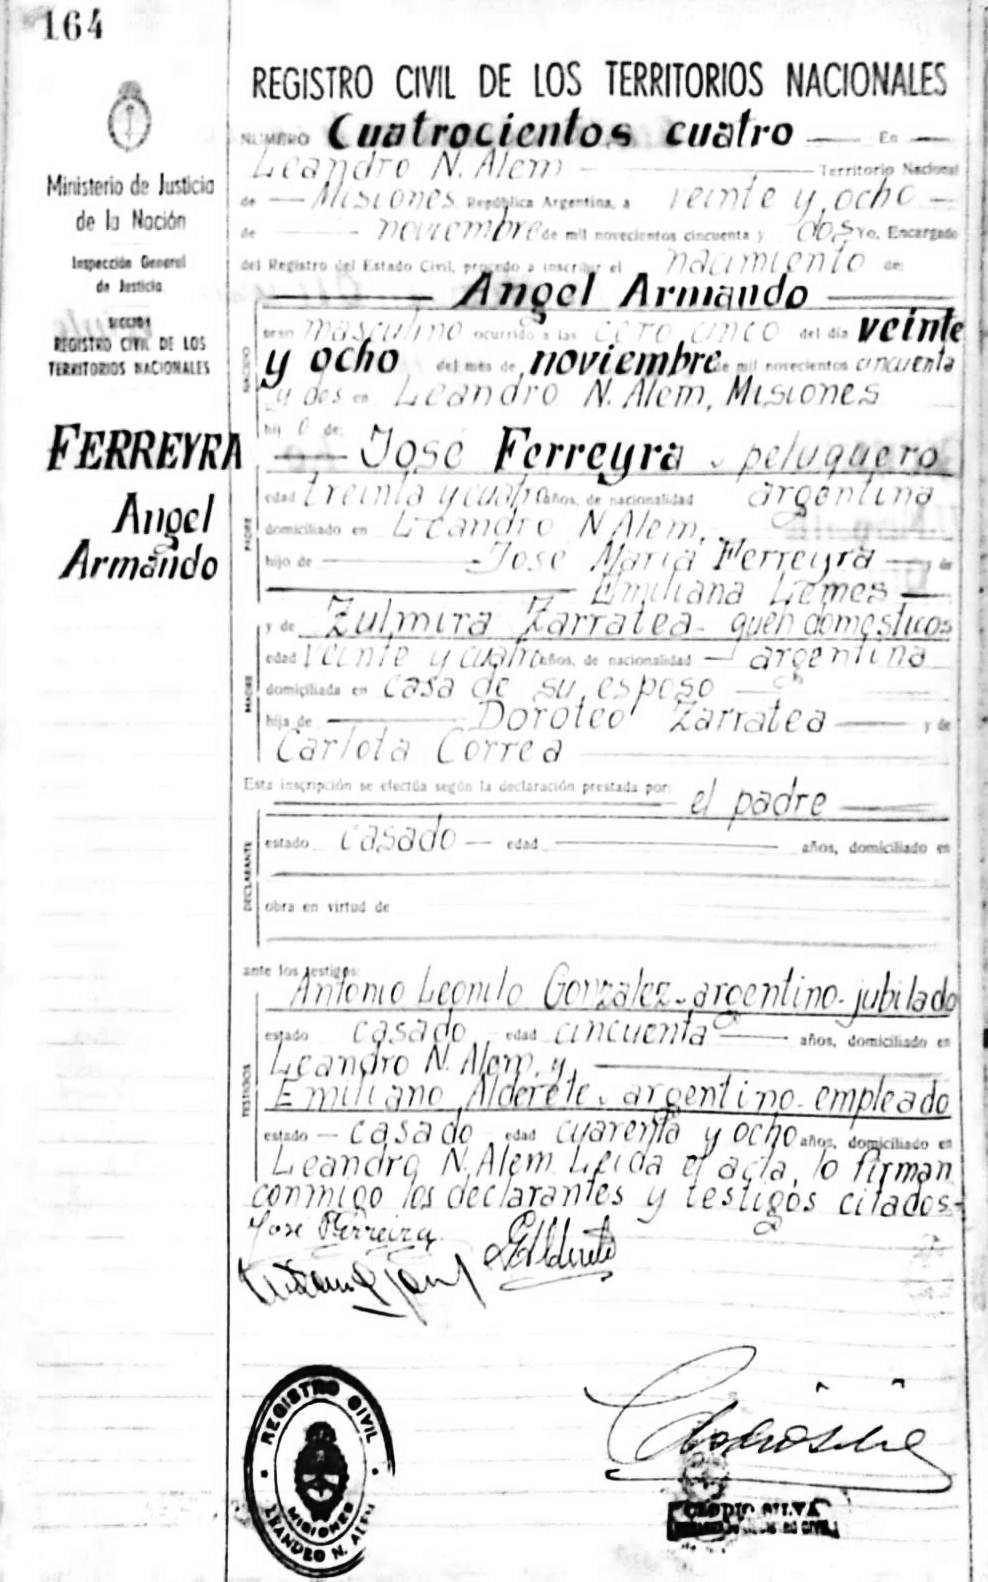 164
Ministerio de Justicia
de la Nación
Inspección General
de Justicia
SECCION
REGISTRO CIVIL DE LOS
TERRITORIOS NACIONALES
FERREYRA
Angel
Armando
REGISTRO CIVIL DE LOS TERRITORIOS NACIONALES
NUMERO Cuatrocientos cuatro — En —
Leandro N. Alem — Territorio Nacional
de — Misiones República Argentina, a veinte y ocho —
de — noviembre de mil novecientos cincuenta y dos Yo, Encargado
del Registro del Estado Civil, procedo a inscribir el nacimiento de:
— Angel Armando —
NACIDO
sexo masculino ocurrido a las cero cinco del día veinte
y ocho del mes de noviembre de mil novecientos cincuenta
y dos en Leandro N. Alem, Misiones
hij o de:
— José Ferreyra - peluquero
PADRE
edad treinta y cuatro años, de nacionalidad argentina
domiciliado en Leandro N. Alem,
hijo de — José María Ferreyra — y de
— Emiliana Lemes —
y de Zulmira Zarratea - queh domésticos
MADRE
edad veinte y cuatro años, de nacionalidad — argentina
domiciliada en casa de su esposo —
hija de — Doroteo Zarratea — y de
Carlota Correa —
Esta inscripción se efectúa según la declaración prestada por:
— el padre —
DECLARANTE
estado casado — edad — años, domiciliado en
obra en virtud de
ante los testigos:
Antonio Leonilo Gonzalez - argentino - jubilado
TESTIGOS
estado casado edad cincuenta — años, domiciliado en
Leandro N. Alem, y —
Emiliano Alderete - argentino - empleado
estado — casado edad cuarenta y ocho años, domiciliado en
Leandro N. Alem. Leida el acta, lo firman
conmigo los declarantes y testigos citados. -
José Ferreira
EAlderete
REGISTRO CIVIL
MISIONES
LEANDRO N. ALEM
CLODIO SILVA